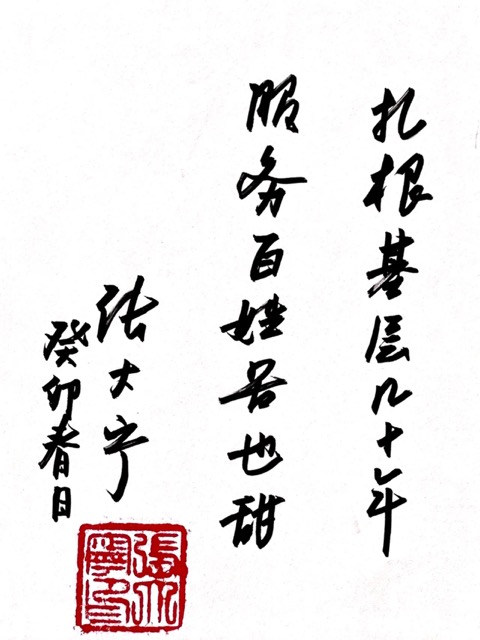 扎根基层几十年
服务百姓苦也甜
张大宁
癸卯春日
張大寧印